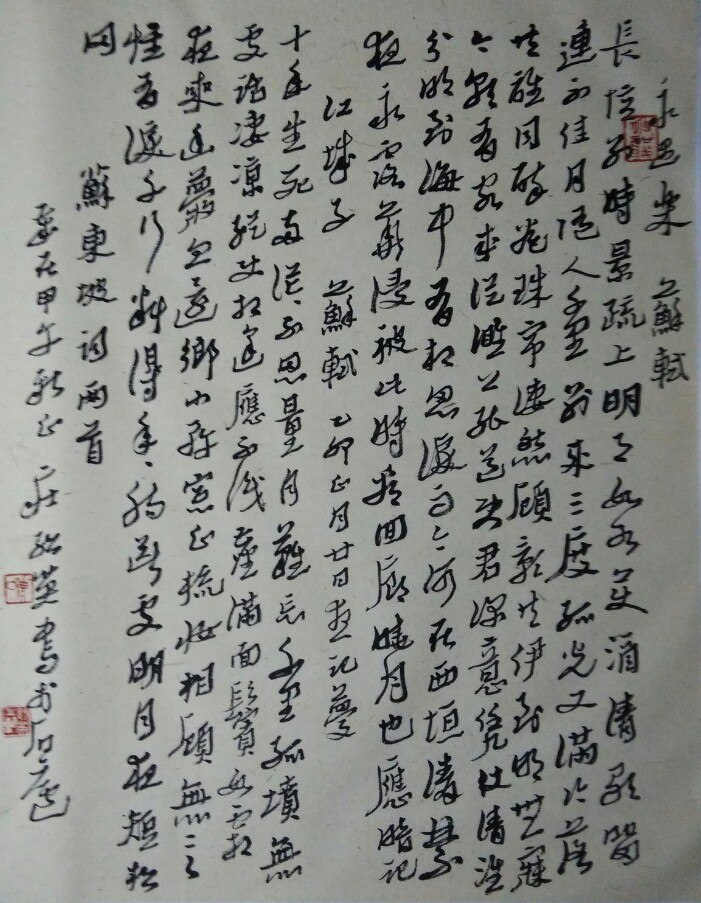 永遇樂 蘇軾
長憶別時景疏上明月如水美酒清歌留
連不住月隨人千里別來三度孤光又滿冷落
共誰同醉卷珠帘凄然顧影共伊到明無寐
今朝有客來從濉上能道使君深意凭仗清淮
分明到海中有相思淚而今何在西垣清禁
夜永露華侵被此時看回廊曉月也應暗記
江城子 蘇軾 乙卯正月廿日夜記夢
十年生死兩茫々不思量自難忘千里孤墳無
處話凄涼縱使相逢應不識塵滿面鬢如霜
夜來幽夢忽還鄉小軒窗正梳妝相顧無言
惟有淚千行料得年々腸斷處明月夜短松
岡
蘇東坡詞兩首
歲在甲午新正 莊 英書於 廬